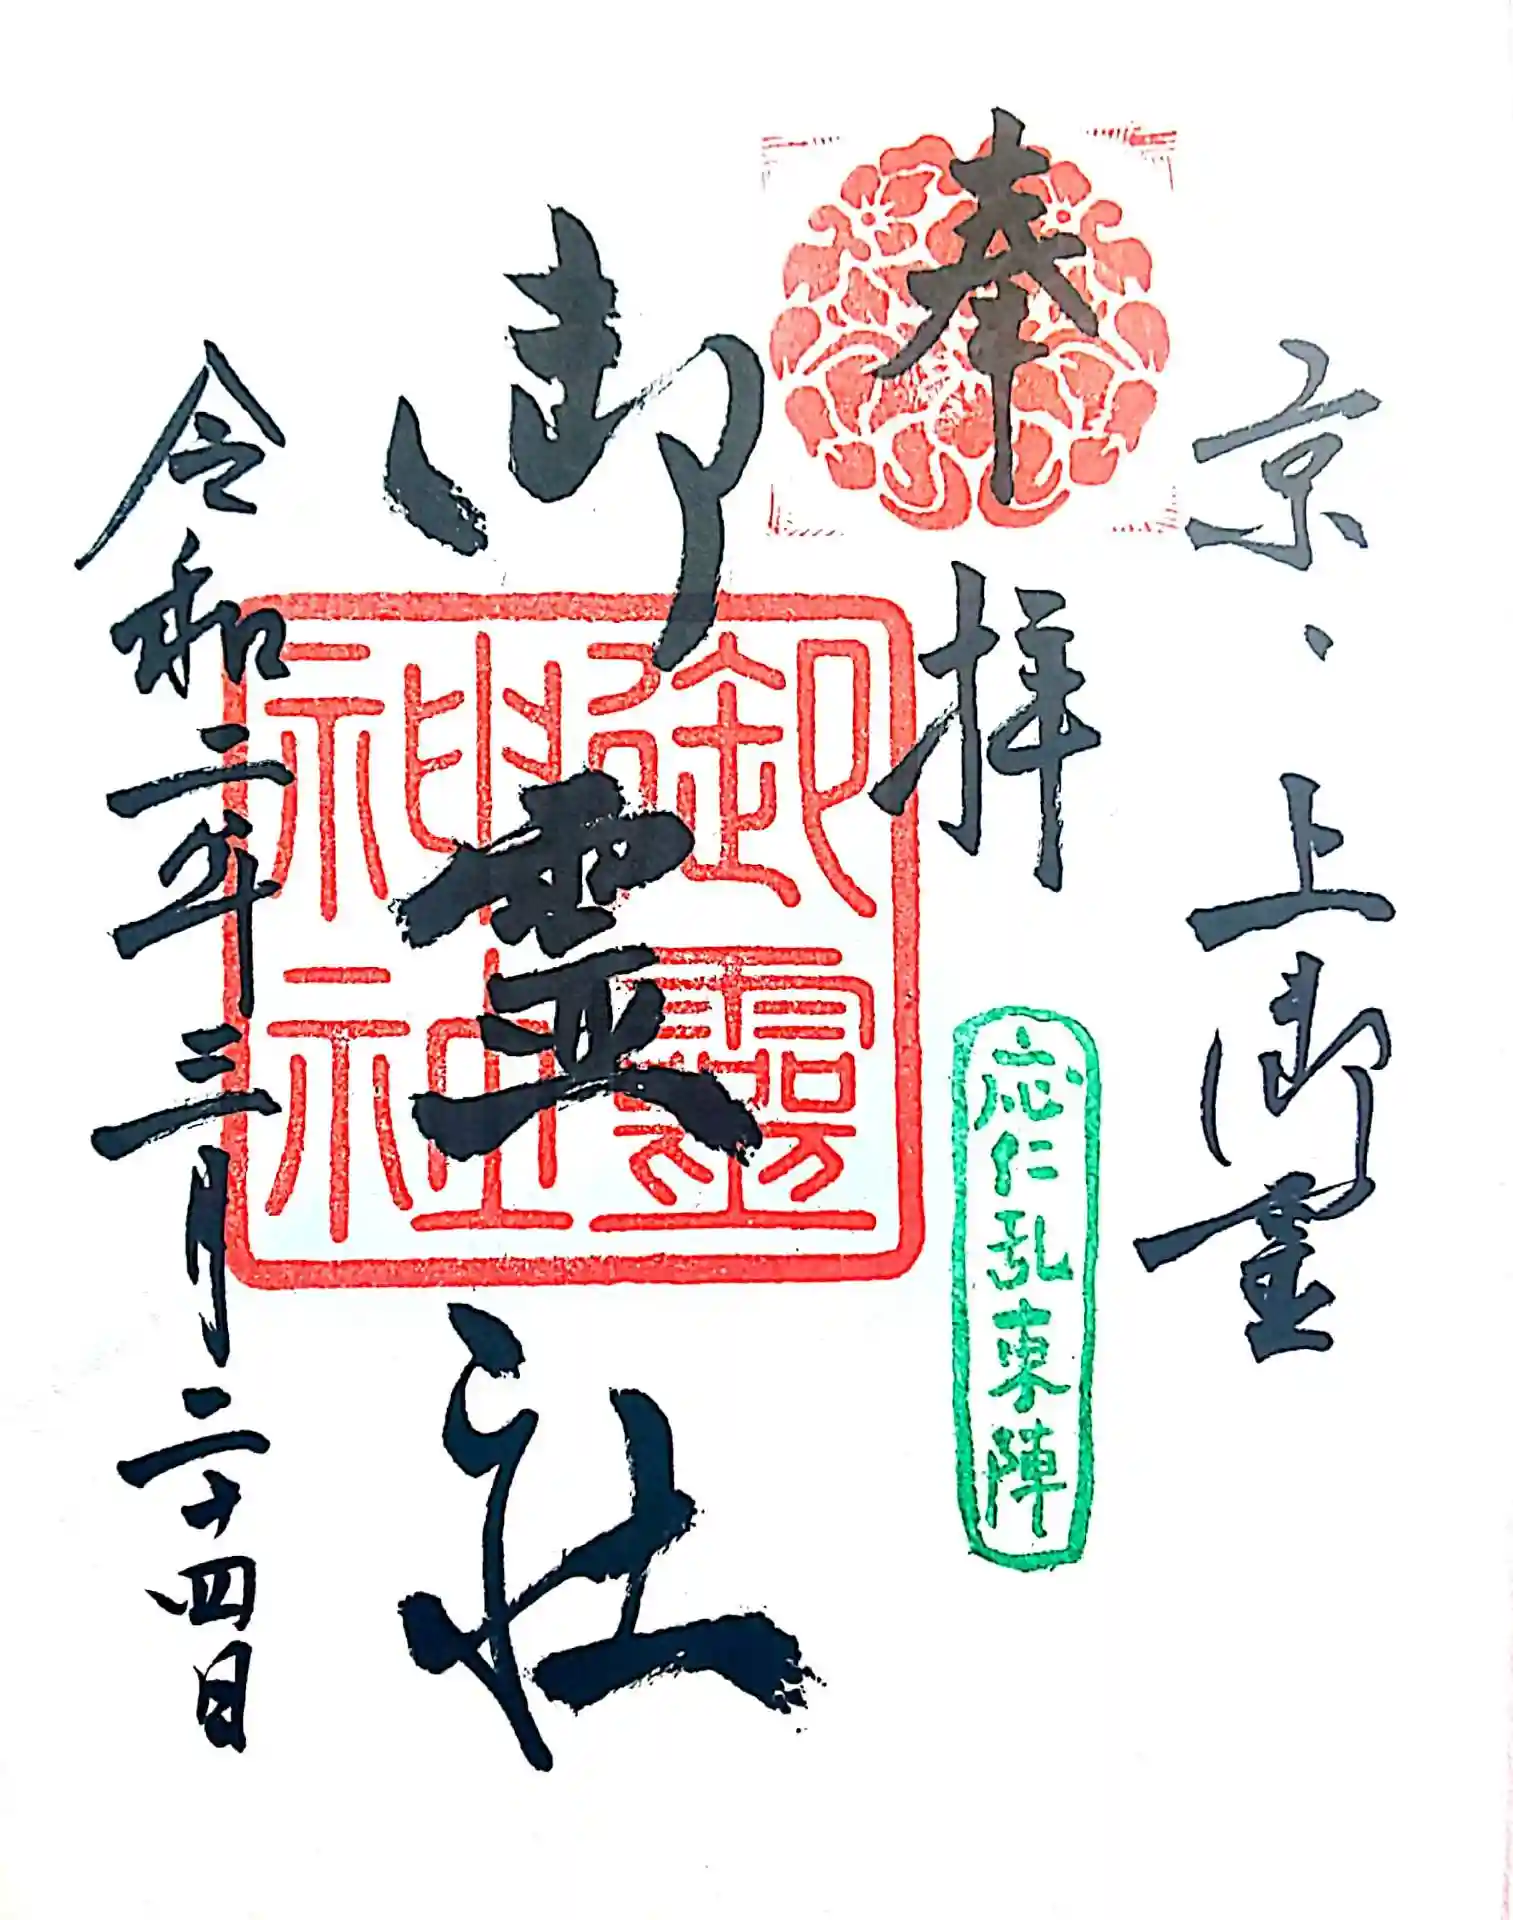 京・上御霊
奉拝
応仁乱東陣
御霊社
御霊
神社
令和二年三月二十四日